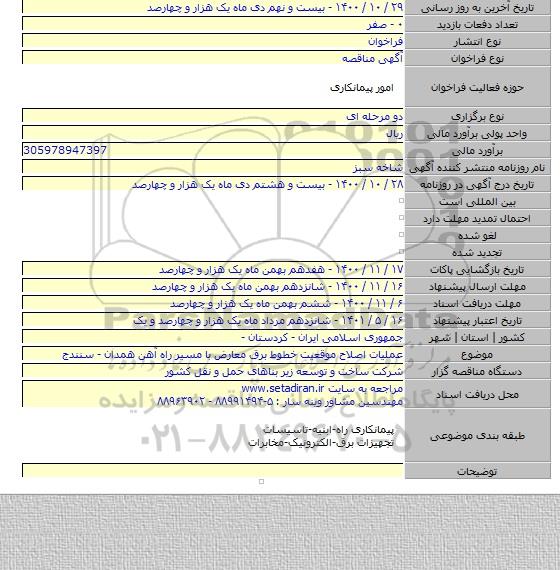 تاریخ آخرین به روز رسانی ۲۹ / ۱۰ / ۱۴۰۰ - بیست و نهم دی ماه یک هزار و چهارصد
تعداد دفعات بازدید ۰ - صفر
نوع انتشار فراخوان
نوع فراخوان آگهی مناقصه
حوزه فعالیت فراخوان امور پیمانکاری
نوع برگزاری دو مرحله ای
واحد پولی برآورد مالی ریال
برآورد مالی 305978947397
نام روزنامه منتشر کننده آگهی شاخه سبز
تاریخ درج آگهی در روزنامه ۲۸ / ۱۰ / ۱۴۰۰ - بیست و هشتم دی ماه یک هزار و چهارصد
بین المللی است
احتمال تمدید مهلت دارد
لغو شده
تجدید شده
تاریخ بازگشایی پاکات ۱۷ / ۱۱ / ۱۴۰۰ - هفدهم بهمن ماه یک هزار و چهارصد
مهلت ارسال پیشنهاد ۱۶ / ۱۱ / ۱۴۰۰ - شانزدهم بهمن ماه یک هزار و چهارصد
مهلت دریافت اسناد ۶ / ۱۱ / ۱۴۰۰ - ششم بهمن ماه یک هزار و چهارصد
تاریخ اعتبار پیشنهاد ۱۶ / ۵ / ۱۴۰۱ - شانزدهم مرداد ماه یک هزار و چهارصد و یک
کشور | استان | شهر جمهوری اسلامی ایران - کردستان -
موضوع عملیات اصلاح موقعیت خطوط برق معارض با مسیر راه آهن همدان - سنندج
دستگاه مناقصه گزار شرکت ساخت و توسعه زیر بناهای حمل و نقل کشور
محل دریافت اسناد مراجعه به سایت www.setadiran.ir
مهندسین مشاور ونبه سار : ۵-۸۸۹۹۱۴۹۴ - ۸۸۹۶۳۹۰۲
طبقه بندی موضوعی پیمانکاری راه-ابنیه-تاسیسات
تجهیزات برق-الکترونیک-مخابرات
توضیحات